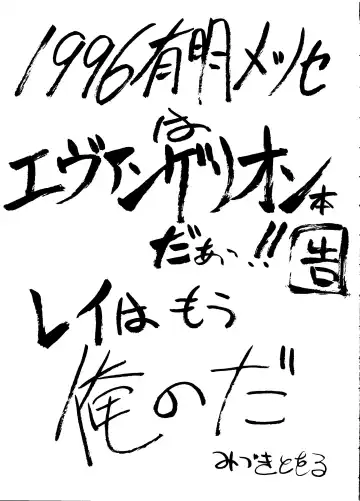 1996有明メッセ
は
エヴァンゲリオン本
だぁ〜!!
告
レイはもう
俺のだ
みづきともる